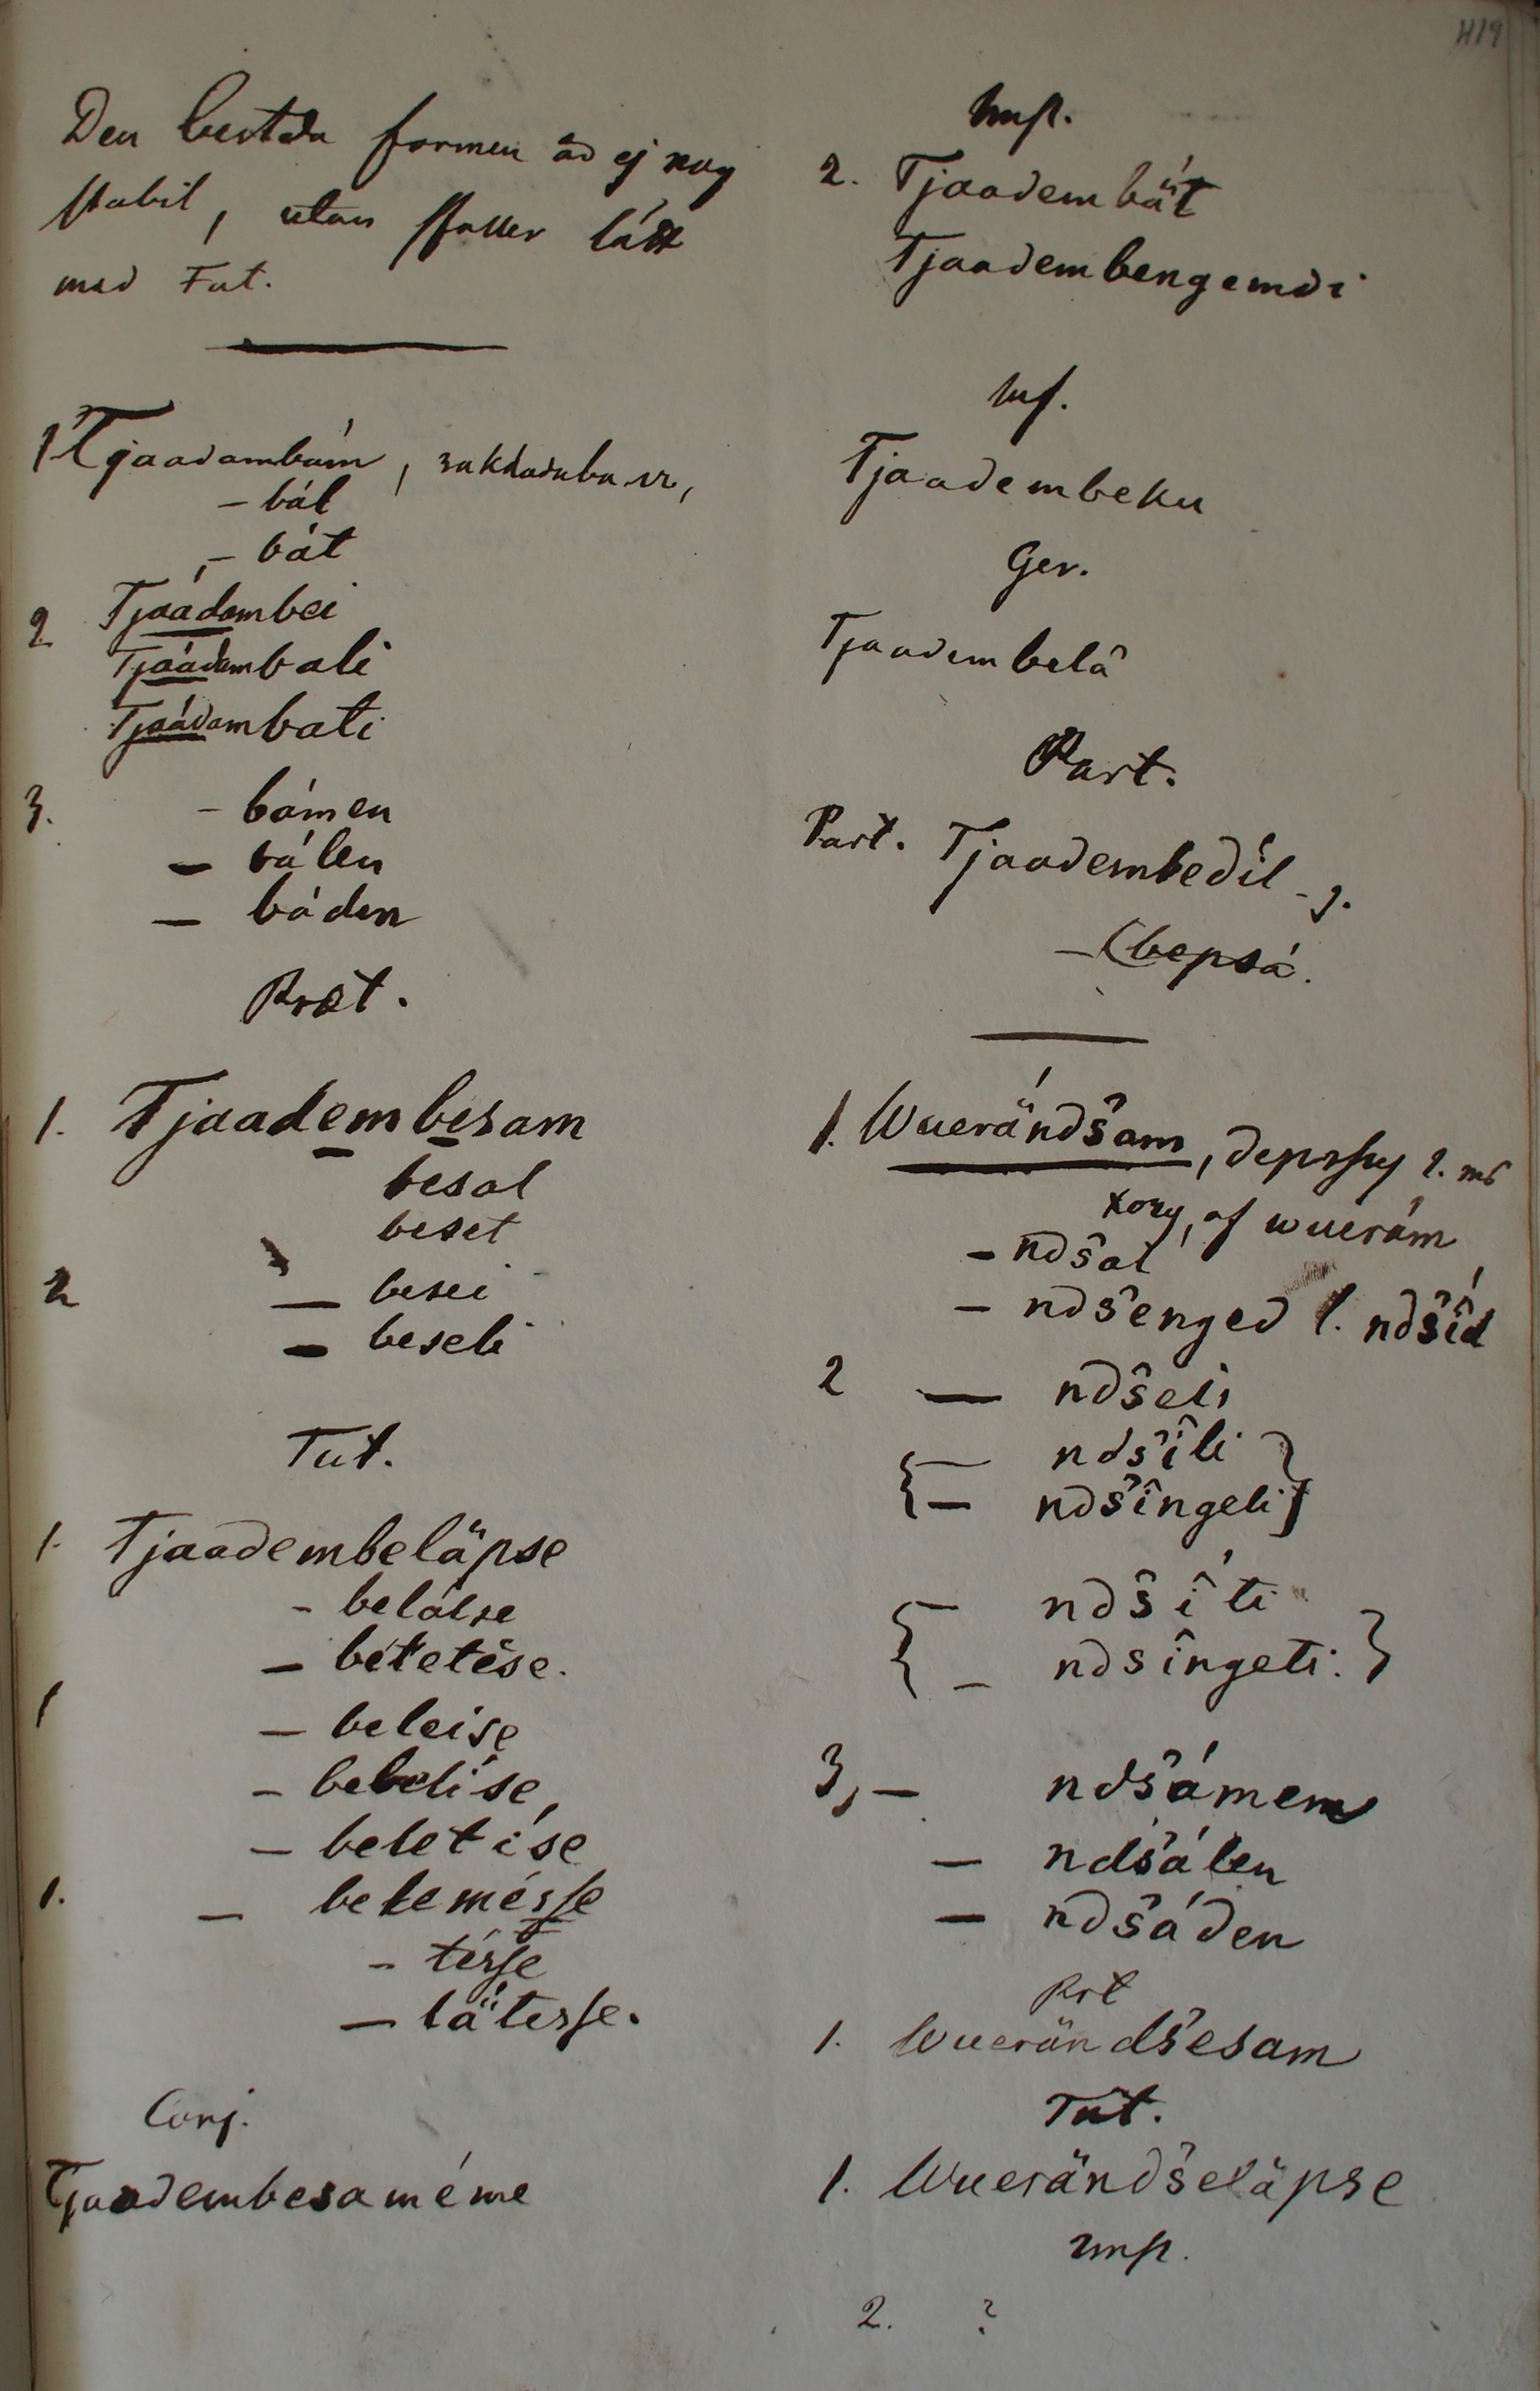 Den form är ej nog
stabil, utan faller lätt
med Fut.
1 Tjaadambám,
- bál
- bát
2 Tjaádambei
Tjaádambali
Tjaádambati
3. - bámen
- bálen
- báden
Prät.
1. Tjaadembesam
besal
beset
2 - besei
- beseli
Fut.
1. Tjaadembeläpse
- belálse
- betetése.
1 - beleise
- belelíse,
- beletíse
1. - belemésse
- tésse
- lä́tesse.
Conj.
Tjaadembesaméme
H19
Imp.
2. Tjaadembä́t
Tjaadembengemdi
Inf.
Tjaadembeku
Ger.
Tjaadembelâ
Part.
Part. Tjaadembedîl - j.
- (bepsá.
1. Wuerändšam,
, af wuerám
- ndšal
- ndšenged l. ndšîd
2 - ndšeli
{- ndšîli }
{- ndšîngeli }
{- ndšîti
{ - ndsîngeti. }
3, - ndšámem
- ndšálen
- ndšáden
Prt
1. Wuerändšesam
Fut.
1. Wuerändšeläpse
Imp.
2. ?